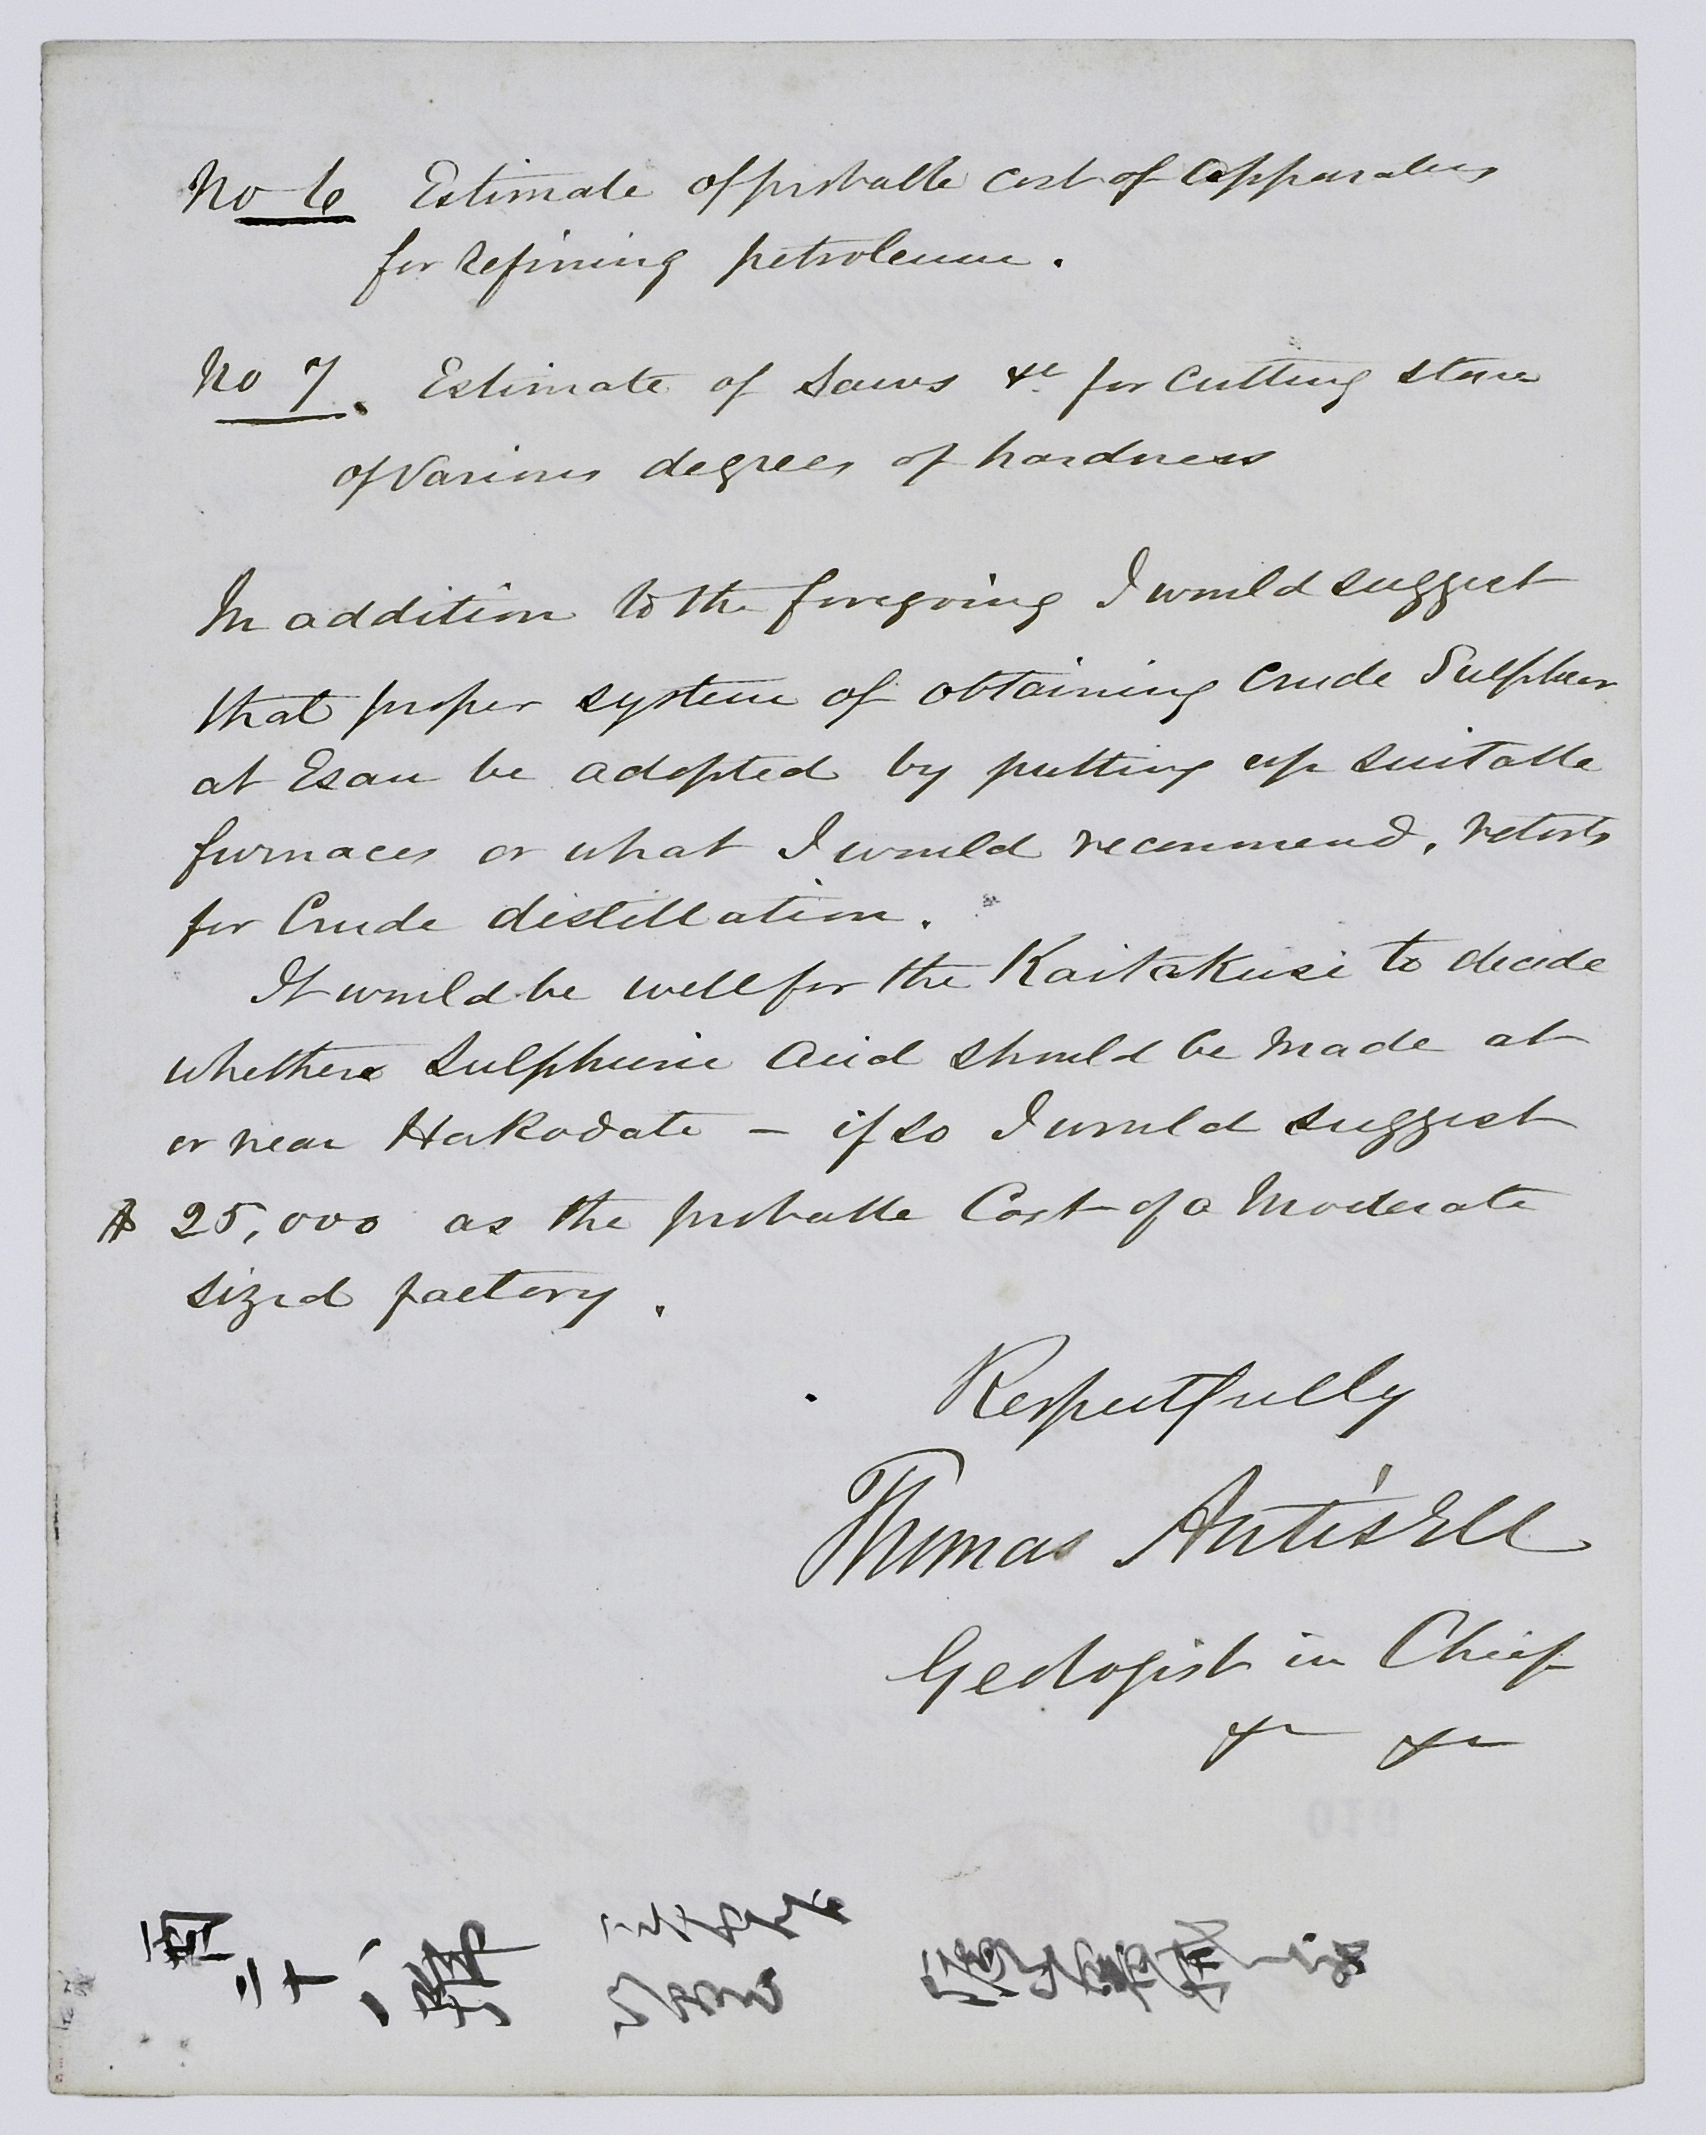 No 6 Estimate of probable cost of apparatus
for refining petroleum.
No 7. Estimate of Saws &c for cutting stone
of various degrees of hardness
In addition to the foregoing I would suggest
that proper system of obtaining crude Sulphur
at Esan be adopted by putting up suitable
furnaces or what I would recommend, retorts
for Crude distillation.
It would be well for the Kaitakusi to decide
whether Sulphuric Acid should be made at
or near Hakodate – if so I would suggest
$ 25,000 as the probable Cost of a Moderate
sized factory.
Respectfully
Thomas Antisell
Geologist in Chief
&c &c